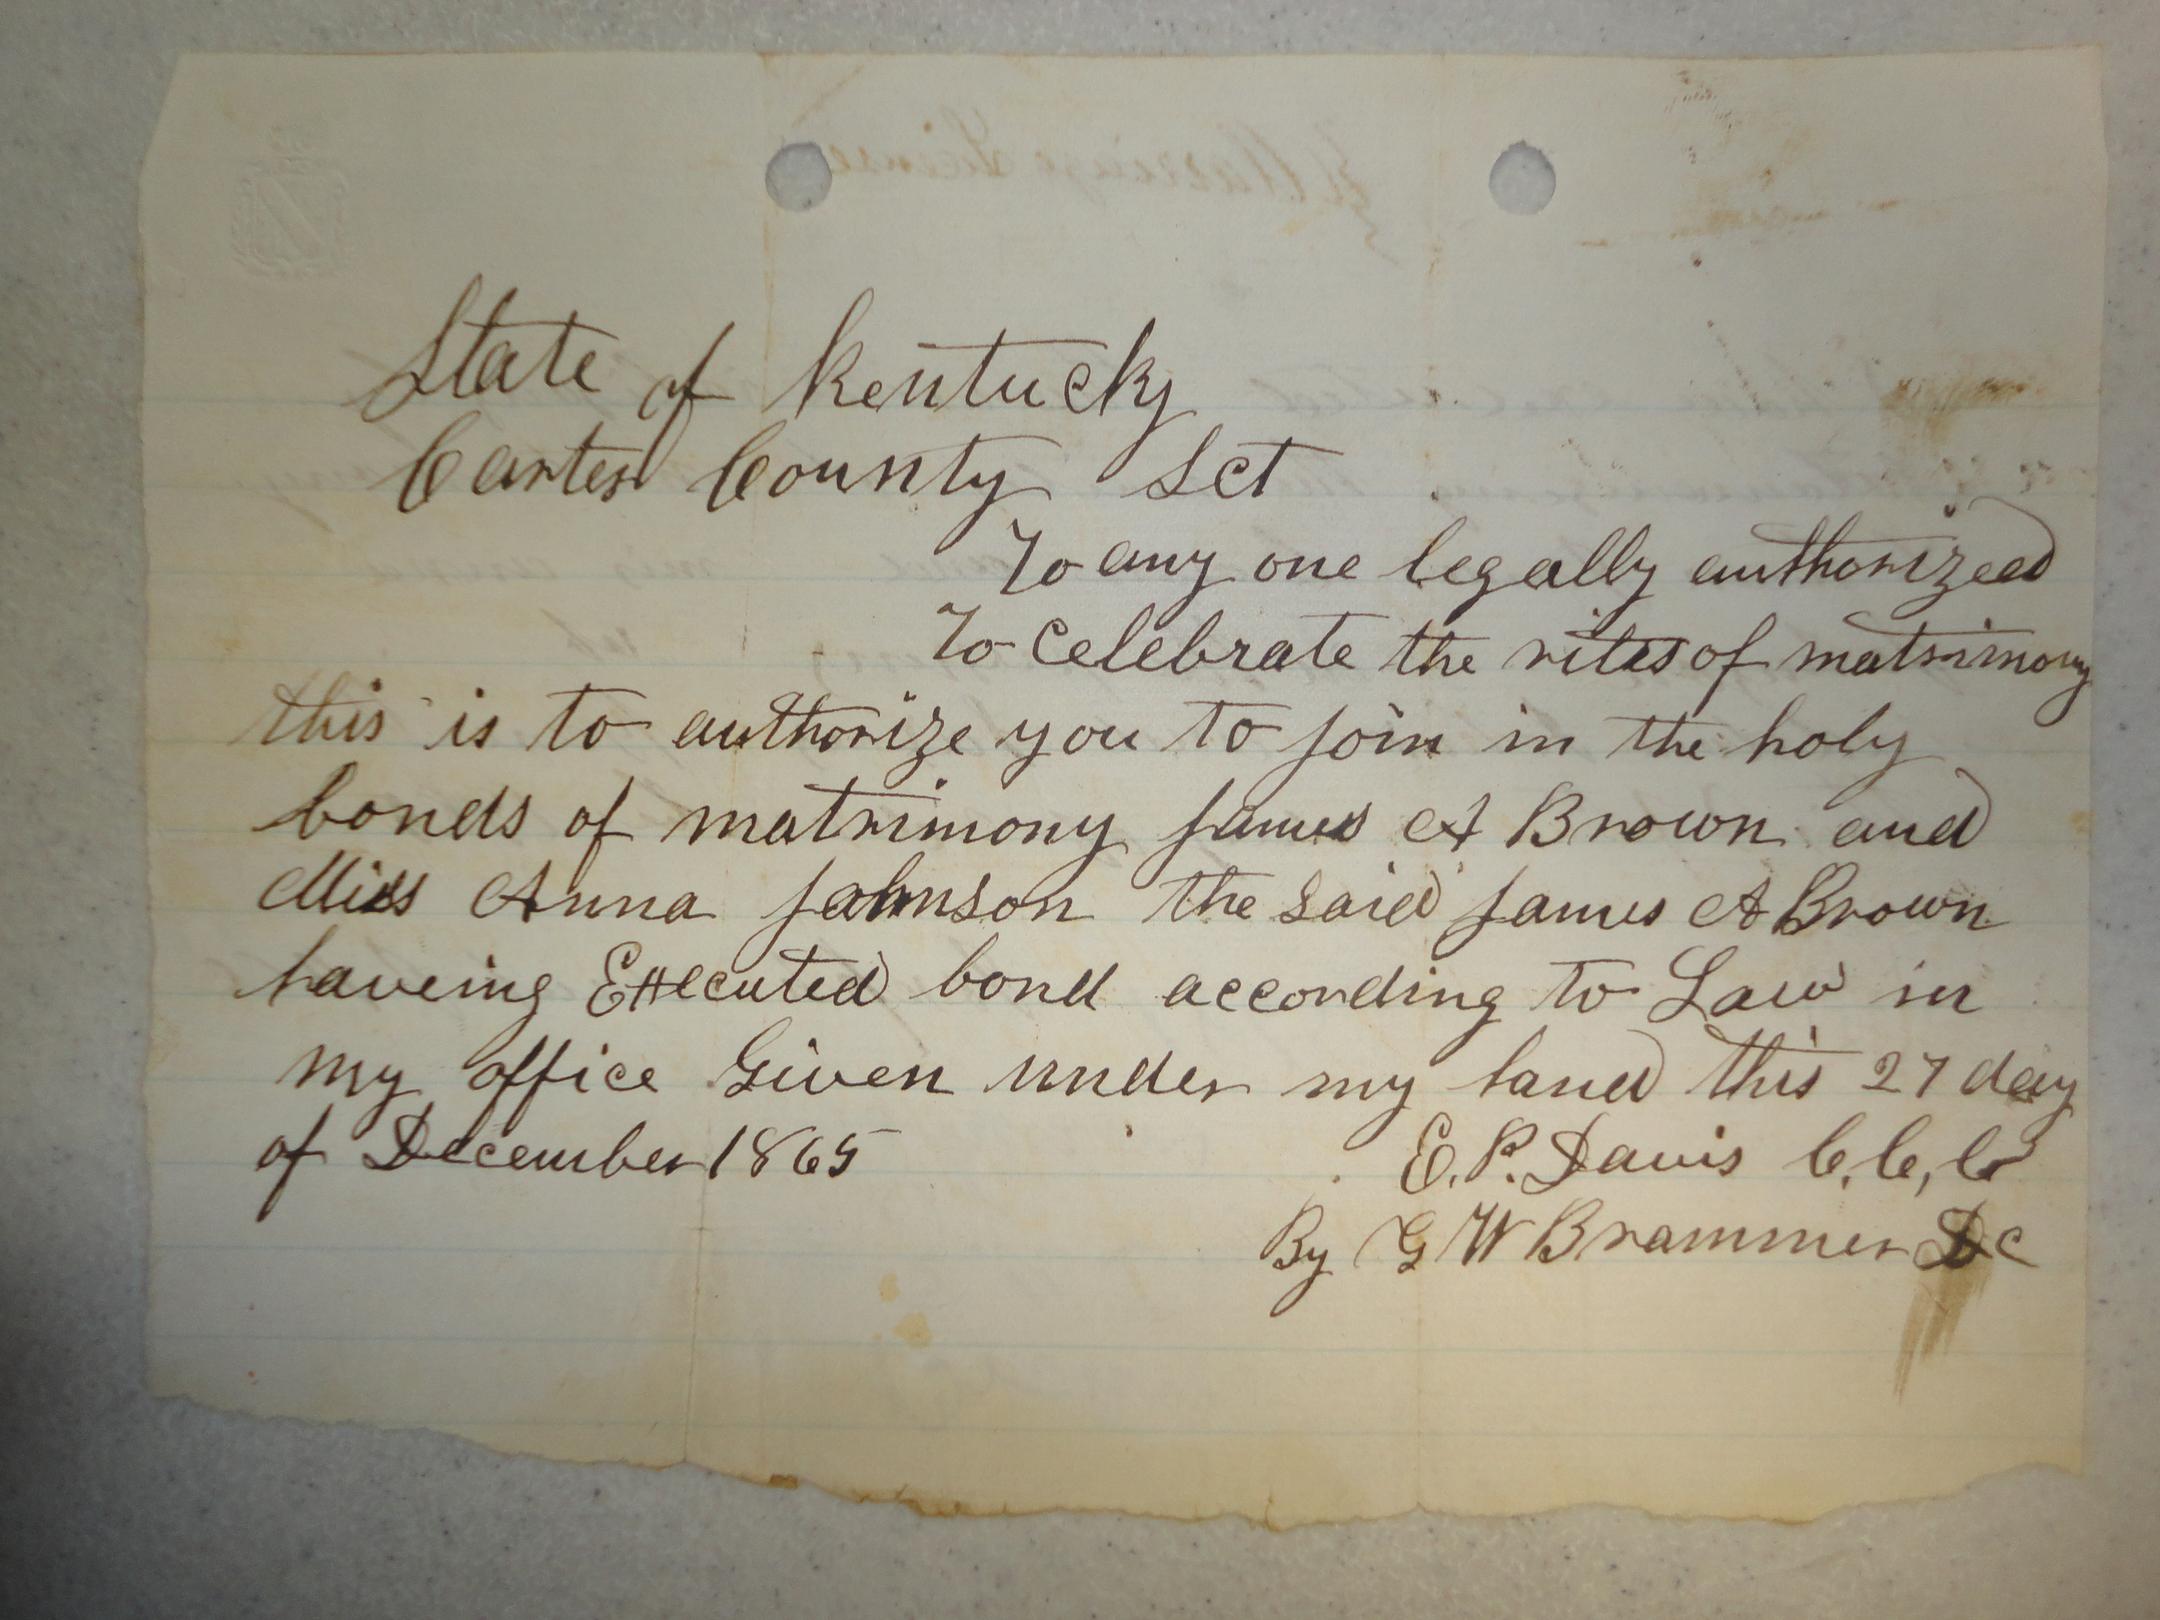 State of Kentucky
Carter County Sct
To any one legally authorizeed
To celebrate the rites of matrimony
this is to authorize you to join in the holy
bonds of matrimony James A Brown and
Miss Anna Johnson the said James A Brown
haveing Executed bond according to Law in
my office Given under my hand this 27 day
of December 1865
E. P. Davis C, C, C
By G W Brammer D C